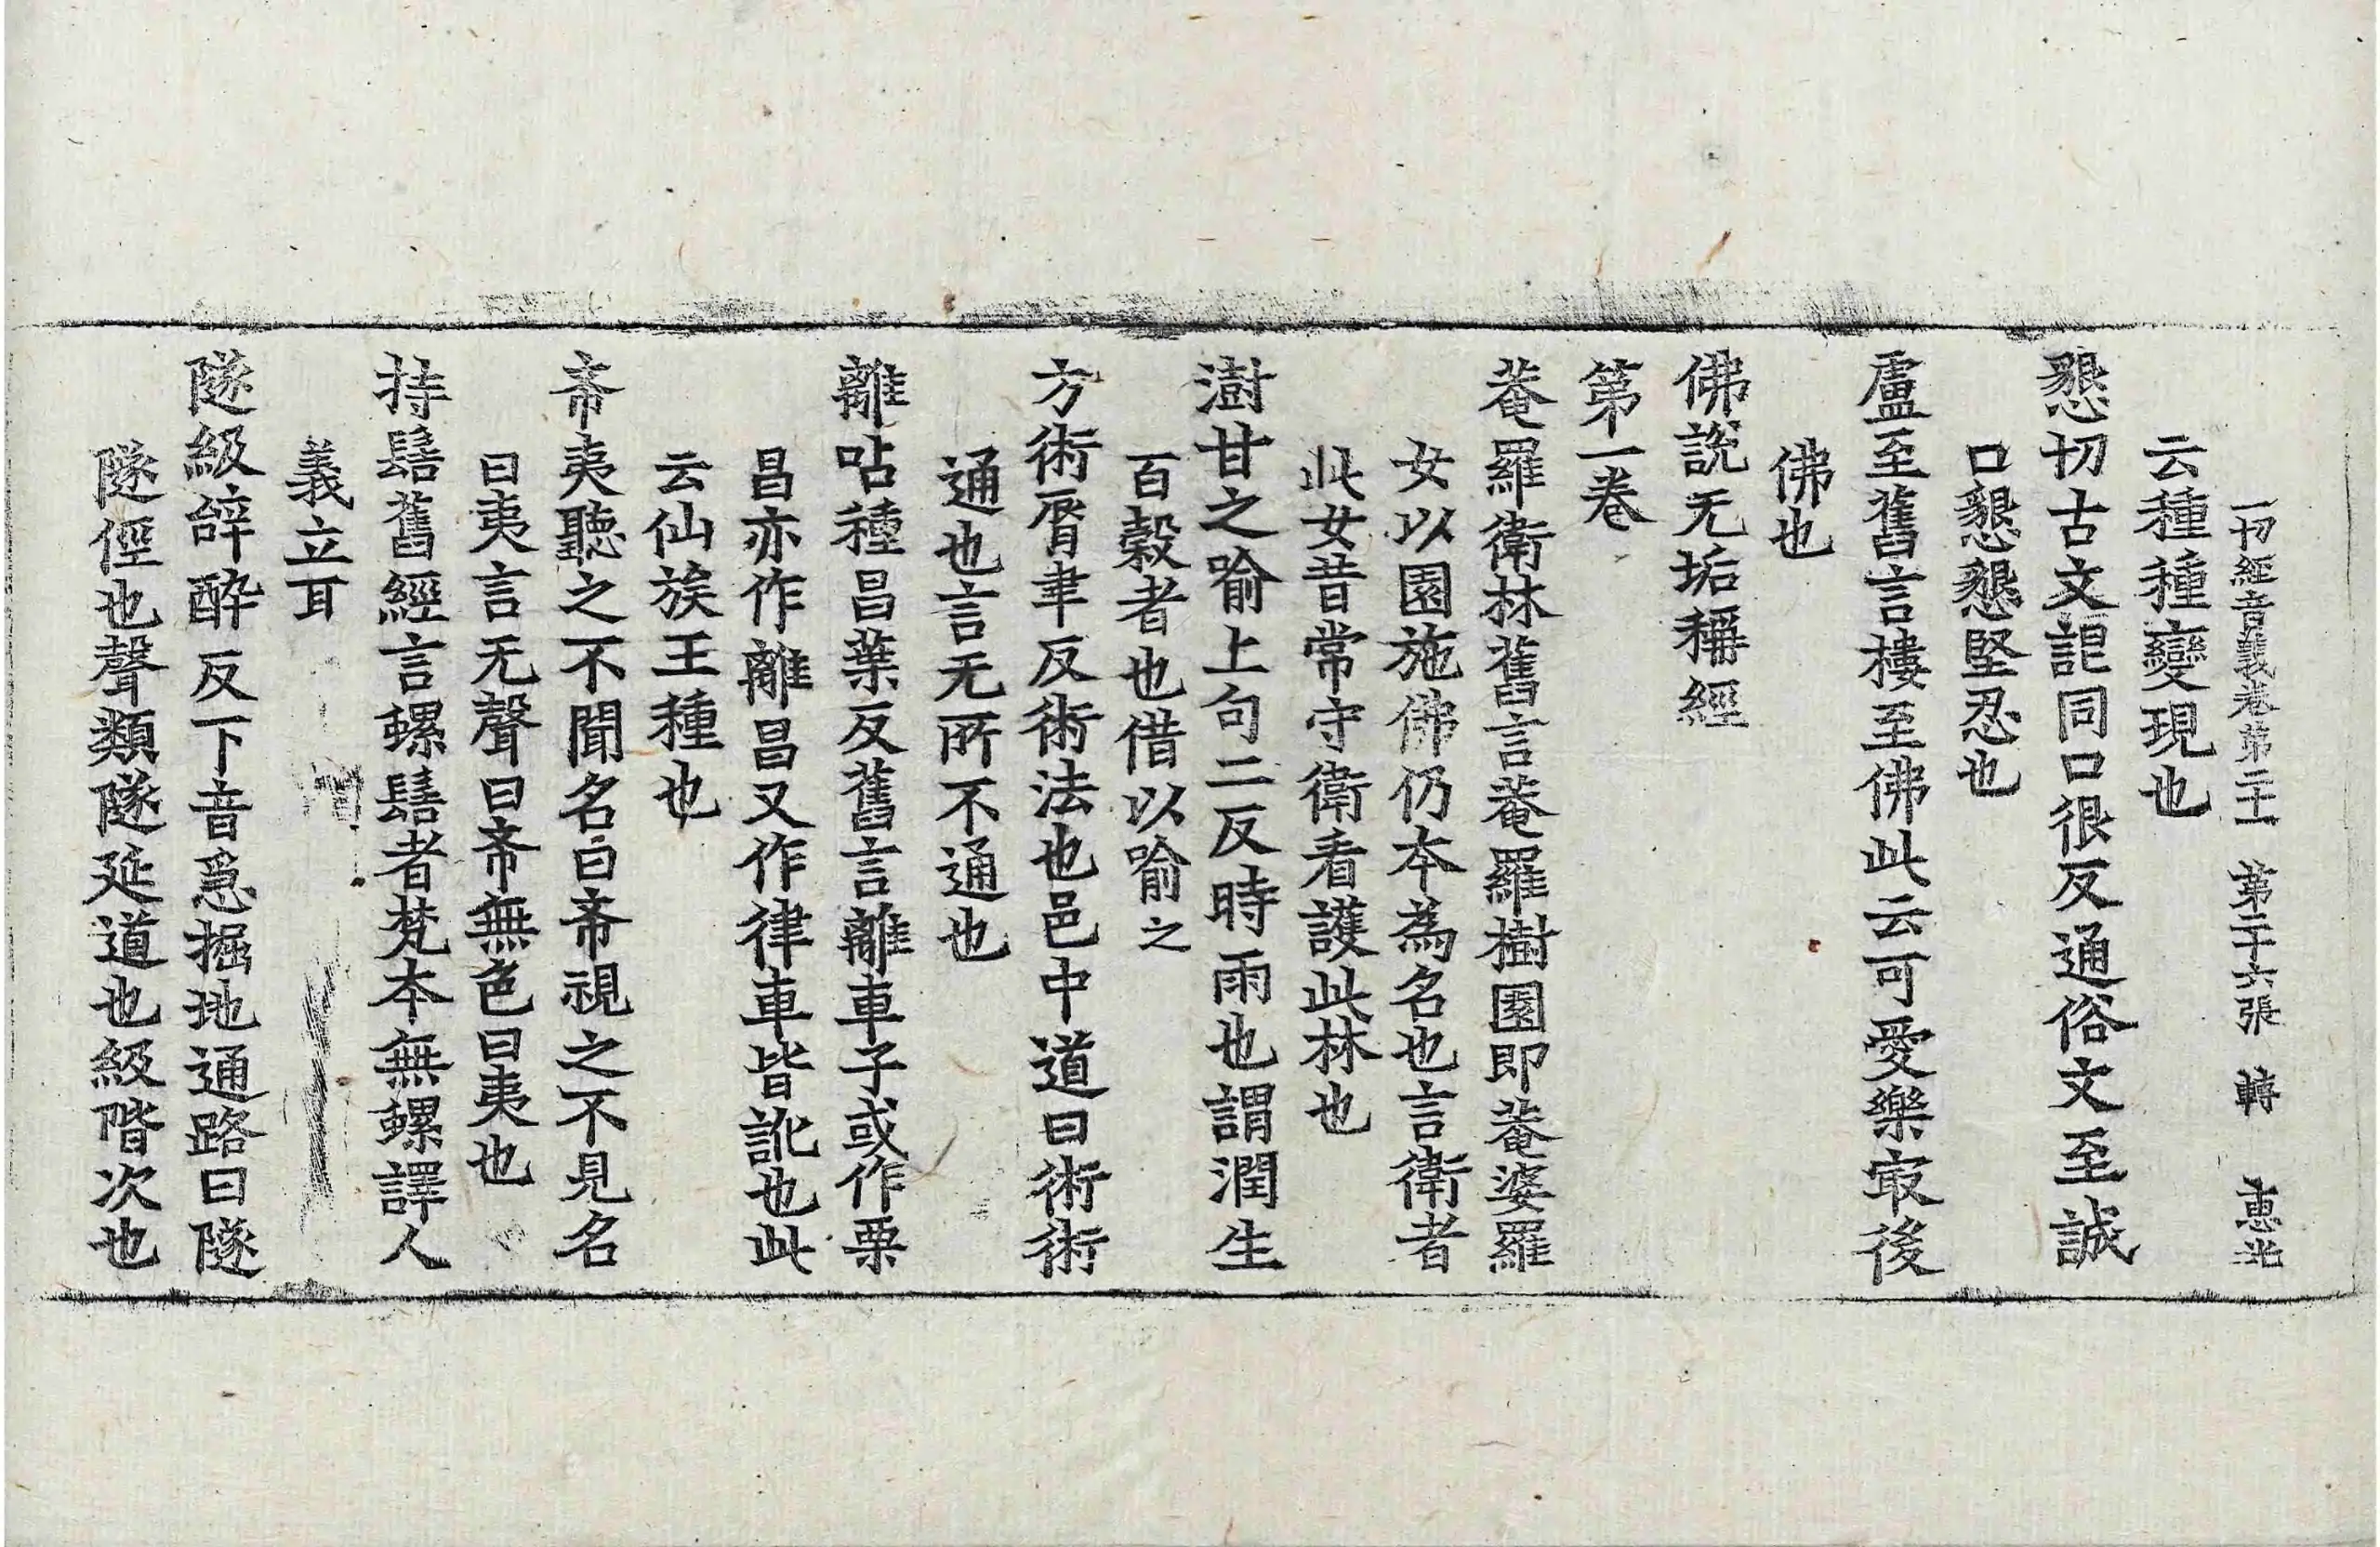 一切經音義卷第二十一 第二十六張 轉 惠光
云種種變現也
懇切古文詪同口很反通俗文至誠
口懇懇堅忍也
盧至舊言樓至佛此云可愛樂㝡後
佛也
佛說无垢稱經
第一卷
菴羅衛林舊言菴羅樹園即菴婆羅
女以園施佛仍本為名也言衛者
此女昔常守衛看護此林也
澍甘之喻上句二反時雨也謂潤生
百穀者也借以喻之
方術脣聿反術法也邑中道曰術術
通也言无所不通也
離呫種昌葉反舊言離車子或作栗
昌亦作離昌又作律車皆訛也此
云仙族王種也
希夷聽之不聞名曰希視之不見名
曰夷言无聲曰希無色曰夷也
持髻舊經言螺髻者梵本無螺譯人
義立耳
隧級辝醉反下音急掘地通路曰隧
隧俓也聲類隧延道也級階次也